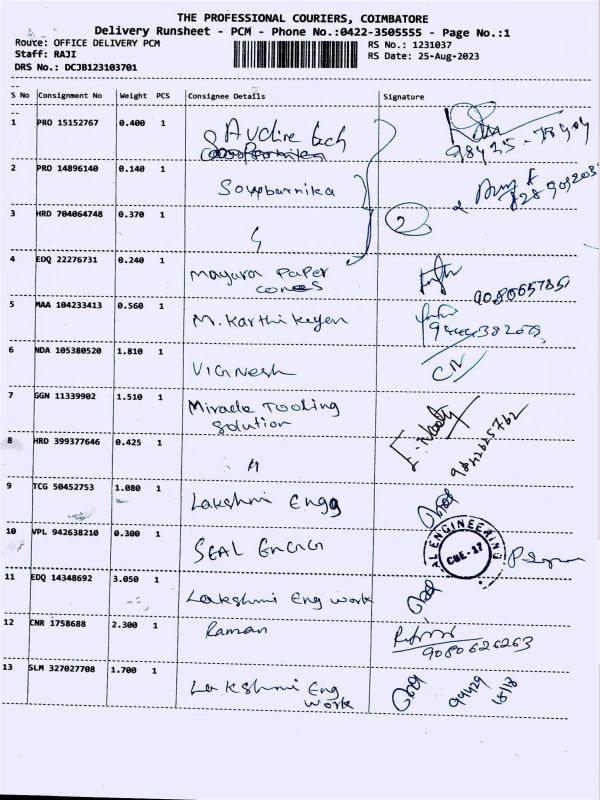 THE PROFESSIONAL COURIERS, COIMBATORE
Delivery Runsheet - PCM - Phone No.:0422-3505555 - Page No.:1
Route: OFFICE DELIVERY PCM RS No.: 1231037
Staff: RAJI RS Date: 25-Aug-2023
DRS No.: DCJB123103701
S No Consignment No Weight PCS Consignee Details Signature
1 PRO 15152767 0.400 1
2 PRO 14896140 0.140 1 Sowparnika
3 HRD 704064748 0.370 1
2
4 EDQ 22276731 0.240 1 Mayura Paper
cones
5 MAA 104233413 0.560 1 M. Karthikeyen
6 NDA 105380520 1.810 1 VIGNesh
7 GGN 11339902 1.510 1 Miracle Tooling
Solution
9842625762
8 HRD 399377646 0.425 1 "
9 TCG 50452753 1.080 1 Lakshmi Engg
10 VPL 942638210 0.300 1 SEAL
AL ENGINEERING
CBE-17
11 EDQ 14348692 3.050 1 Lakshmi Eng work
12 CNR 1758688 2.300 1 Raman
9080626263
13 SLM 327027708 1.700 1 Lakshmi Eng
work